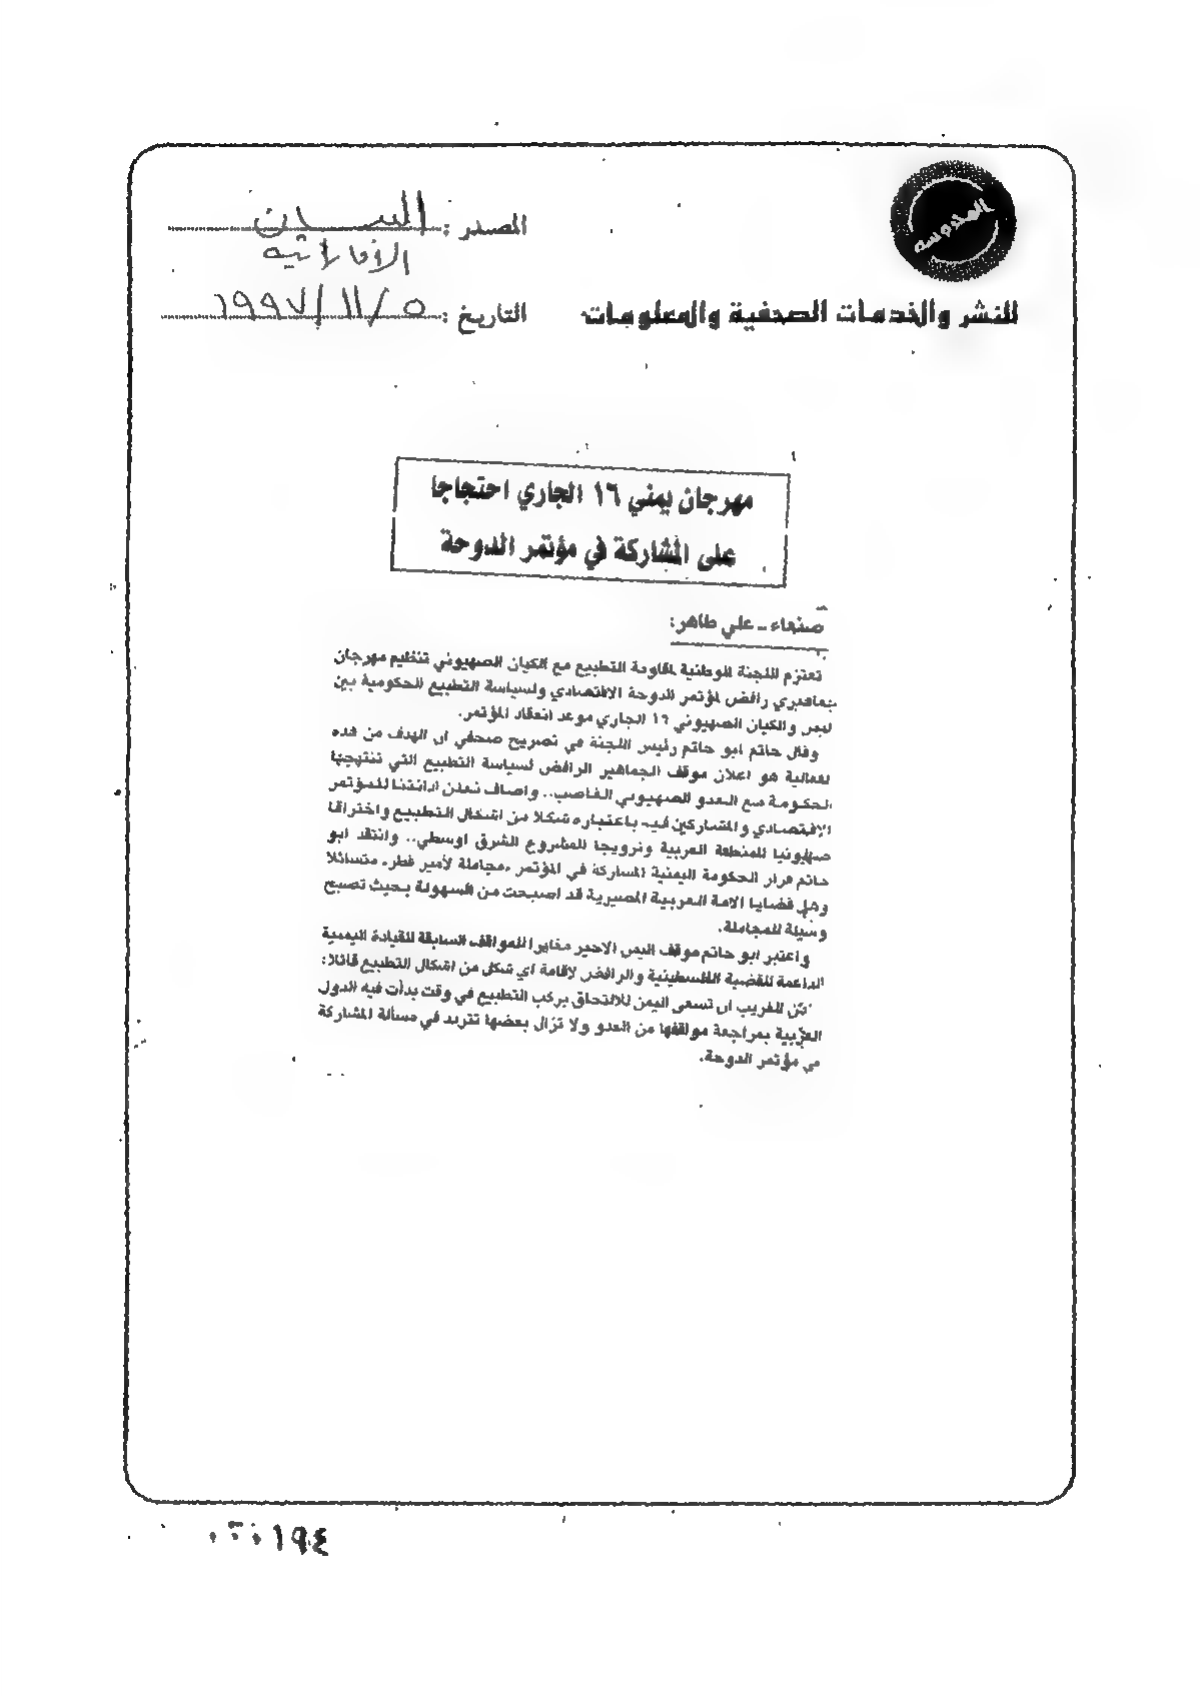 المصدر : البيان
الإماراتيه
للنشر والخدمات الصحفية والمعلومات
التاريخ : ٥ / ١١ / ١٩٩٧
مهرجان يمني ١٦ الجاري احتجاجا
على المشاركة في مؤتمر الدوحة
صنعاء ـ علي طاهر:
تعتزم اللجنة الوطنية لمقاومة التطبيع مع الكيان الصهيوني تنظيم مهرجان
جماهيري رافض لمؤتمر الدوحة الاقتصادي ولسياسة التطبيع الحكومية بين
اليمن والكيان الصهيوني ١٦ الجاري موعد انعقاد المؤتمر.
وقال حاتم ابو حاتم رئيس اللجنة في تصريح صحفي ان الهدف من هذه
الفعالية هو اعلان موقف الجماهير الرافض لسياسة التطبيع التي تنتهجها
الحكومة مع العدو الصهيوني الغاصب.. واضاف نعلن ادانتنا للمؤتمر
الاقتصادي والمشاركين فيه باعتباره شكلا من اشكال التطبيع واختراقا
صهيونيا للمنطقة العربية وترويجا للمشروع الشرق اوسطي.. وانتقد ابو
حاتم قرار الحكومة اليمنية المشاركة في المؤتمر «مجاملة لأمير قطر» متسائلا
وهل قضايا الامة العربية المصيرية قد اصبحت من السهولة بحيث تصبح
وسيلة للمجاملة.
واعتبر ابو حاتم موقف اليمن الاخير مغايرا للمواقف السابقة للقيادة اليمنية
الداعمة للقضية الفلسطينية والرافض لاقامة اي شكل من اشكال التطبيع قائلا:
من الغريب ان تسعى اليمن للالتحاق بركب التطبيع في وقت بدأت فيه الدول
العربية بمراجعة مواقفها من العدو ولا تزال بعضها تتردد في مسألة المشاركة
في مؤتمر الدوحة.